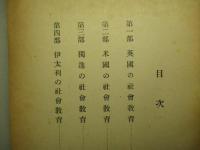 目次
第一部 英國の社會教育
第二部 米國の社會教育
第三部 獨逸の社會教育
第四部 伊太利の社會教育